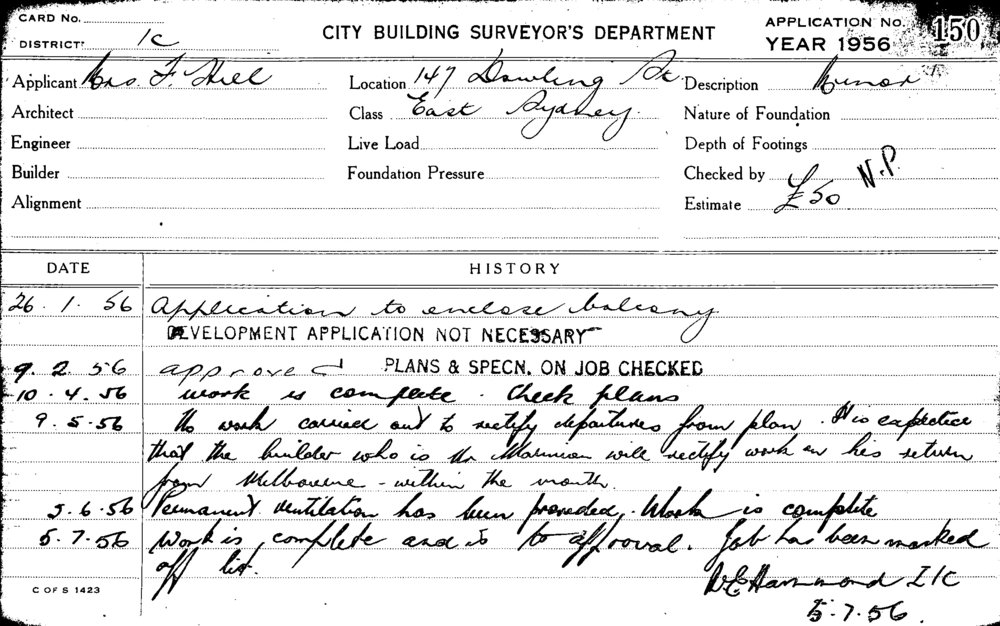 CARD No.
DISTRICT 1C
CITY BUILDING SURVEYOR'S DEPARTMENT
APPLICATION No. 150
YEAR 1956
Applicant Mrs. F. Hill
Location 147 Dowling St
Description Minor
Architect
Class East Sydney.
Nature of Foundation
Engineer
Live Load
Depth of Footings
Builder
Foundation Pressure
Checked by N.P.
Alignment
Estimate £50
DATE HISTORY
26. 1. 56 Application to enclose balcony
DEVELOPMENT APPLICATION NOT NECESSARY
9. 2. 56 approved PLANS & SPECN. ON JOB CHECKED
10. 4. 56 work is complete. Check plans
9. 5. 56 No work carried out to rectify departures from plan. It is expected
that the builder who is will rectify work on his return
from Melbourne - within the month.
5. 6. 56 Permanent ventilation has been provided. Work is complete
5. 7. 56 Work is complete and is to approval. Job has been marked
off list.
Hammond I/C
5. 7. 56.
C OF S 1423